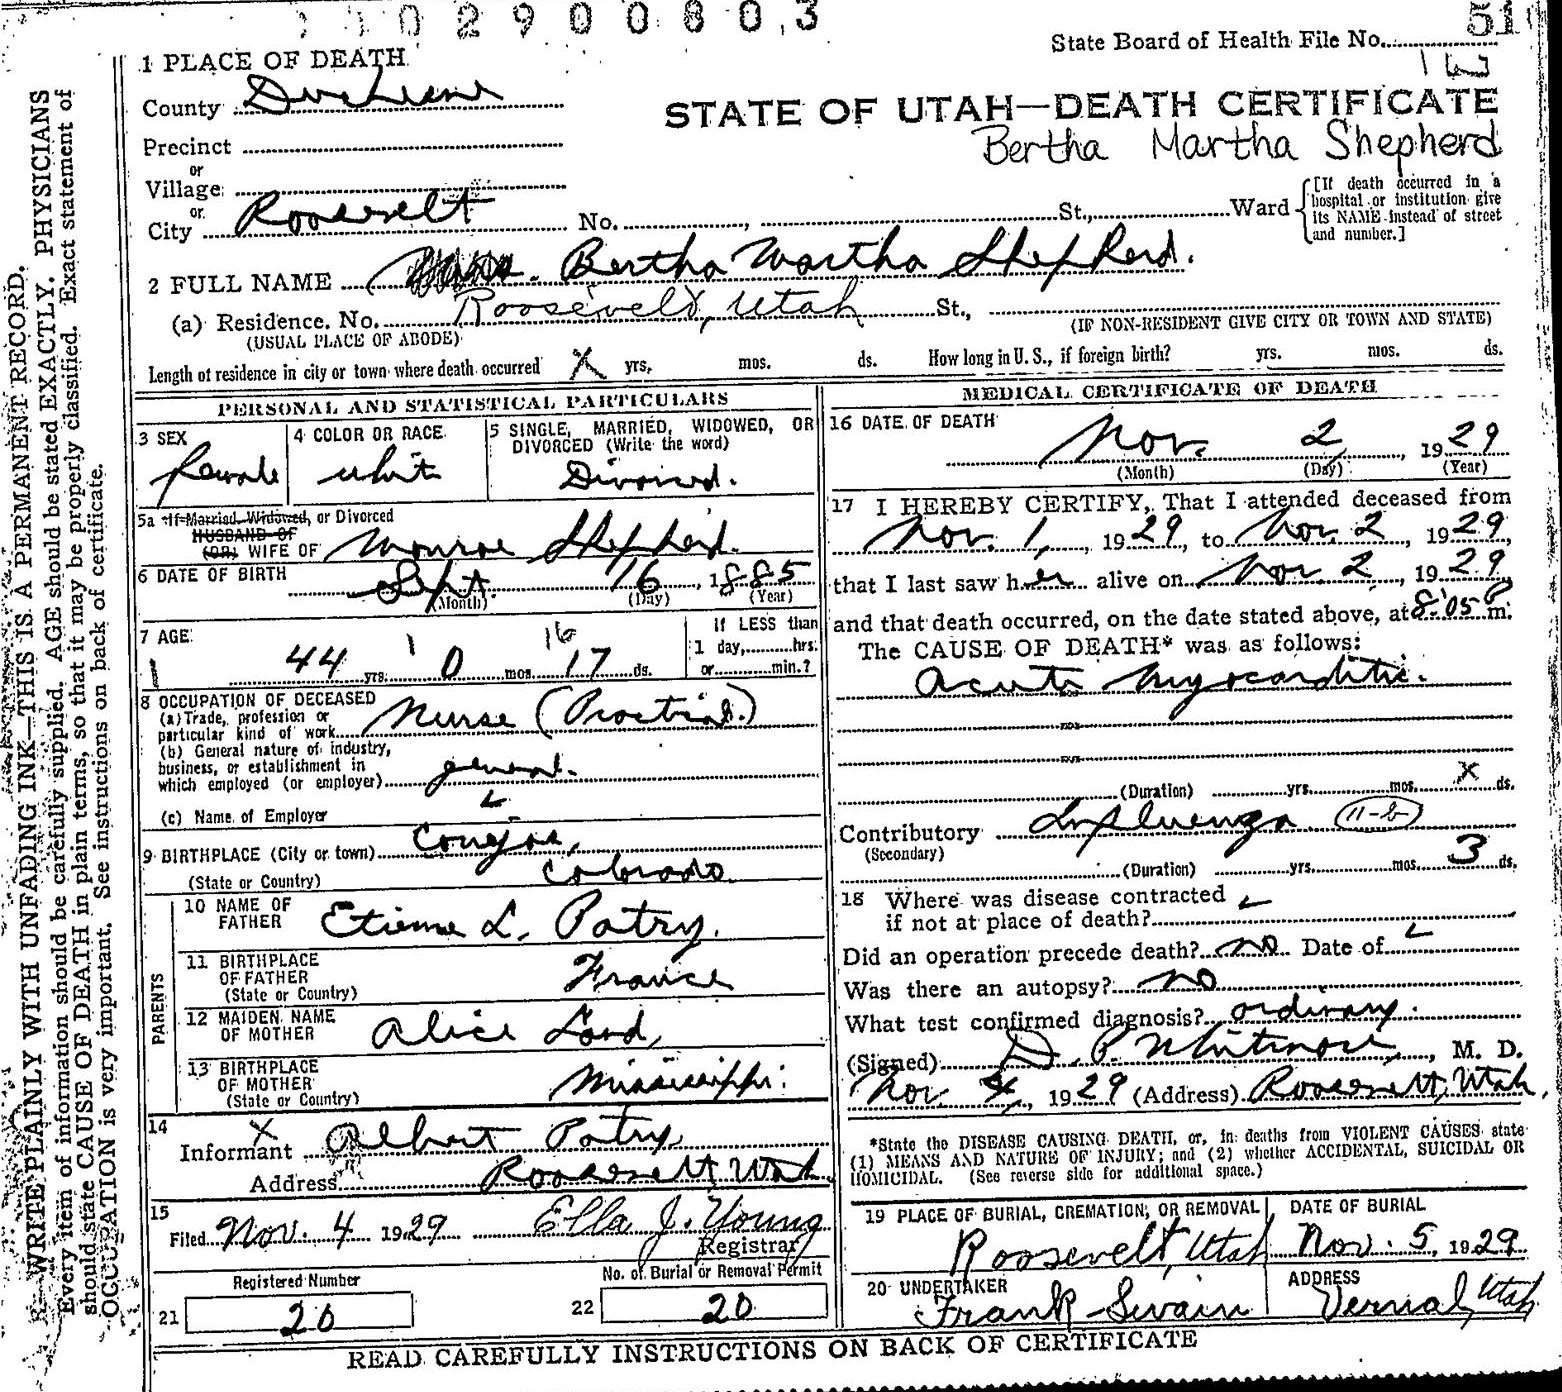 2900803
51
State Board of Health File No.
1 PLACE OF DEATH
County Duchesne
STATE OF UTAH—DEATH CERTIFICATE
Bertha Martha Shepherd
Precinct
or
Village
or
City Roosevelt No. , St., Ward
[If death occurred in a hospital or institution give its NAME instead of street and number.]
2 FULL NAME Bertha Martha Shepherd.
(a) Residence. No. Roosevelt, Utah St.,
(USUAL PLACE OF ABODE) (IF NON-RESIDENT GIVE CITY OR TOWN AND STATE)
Length of residence in city or town where death occurred X yrs. mos. ds. How long in U. S., if foreign birth? yrs. mos. ds.
PERSONAL AND STATISTICAL PARTICULARS
3 SEX
female
4 COLOR OR RACE
white
5 SINGLE, MARRIED, WIDOWED, OR DIVORCED (Write the word)
Divorced.
5a If Married, Widowed, or Divorced
HUSBAND OF
(OR) WIFE OF Monroe Shepherd.
6 DATE OF BIRTH Sept. 16, 1885
(Month) (Day) (Year)
7 AGE 1 16
44 yrs. 0 mos. 17 ds.
If LESS than
1 day, hrs.
or min.?
8 OCCUPATION OF DECEASED
(a) Trade, profession or
particular kind of work Nurse (Practical.)
(b) General nature of industry,
business, or establishment in
which employed (or employer) general.
(c) Name of Employer
9 BIRTHPLACE (City or town) Conejos,
(State or Country) Colorado
PARENTS
10 NAME OF FATHER Etienne L. Patry.
11 BIRTHPLACE OF FATHER (State or Country) France
12 MAIDEN NAME OF MOTHER Alice Lord,
13 BIRTHPLACE OF MOTHER (State or Country) Mississippi.
14 X
Informant Albert Patry,
Address Roosevelt, Utah.
15
Filed Nov. 4 1929 Ella J. Young
Registrar
Registered Number
21 20
No. of Burial or Removal Permit
22 20
MEDICAL CERTIFICATE OF DEATH
16 DATE OF DEATH
Nov. 2, 1929
(Month) (Day) (Year)
17 I HEREBY CERTIFY, That I attended deceased from
Nov. 1, 1929, to Nov. 2, 1929
that I last saw her alive on Nov. 2, 1929
and that death occurred, on the date stated above, at 8:05 P m.
The CAUSE OF DEATH* was as follows:
Acute Myocarditis.
(Duration) yrs. mos. X ds.
Contributory Influenza (11-b)
(Secondary)
(Duration) yrs. mos. 3 ds.
18 Where was disease contracted
if not at place of death?
Did an operation precede death? no Date of
Was there an autopsy? no
What test confirmed diagnosis? ordinary.
(Signed) D. P. Whitmore, M. D.
Nov 4, 1929 (Address) Roosevelt, Utah.
*State the DISEASE CAUSING DEATH, or, in deaths from VIOLENT CAUSES state
(1) MEANS AND NATURE OF INJURY; and (2) whether ACCIDENTAL, SUICIDAL OR
HOMICIDAL. (See reverse side for additional space.)
19 PLACE OF BURIAL, CREMATION, OR REMOVAL
Roosevelt, Utah
DATE OF BURIAL
Nov. 5, 1929
20 UNDERTAKER
Frank Swain
ADDRESS
Vernal, Utah
READ CAREFULLY INSTRUCTIONS ON BACK OF CERTIFICATE
WRITE PLAINLY WITH UNFADING INK—THIS IS A PERMANENT RECORD.
Every item of information should be carefully supplied. AGE should be stated EXACTLY. PHYSICIANS
should state CAUSE OF DEATH in plain terms, so that it may be properly classified. Exact statement of
OCCUPATION is very important. See instructions on back of certificate.